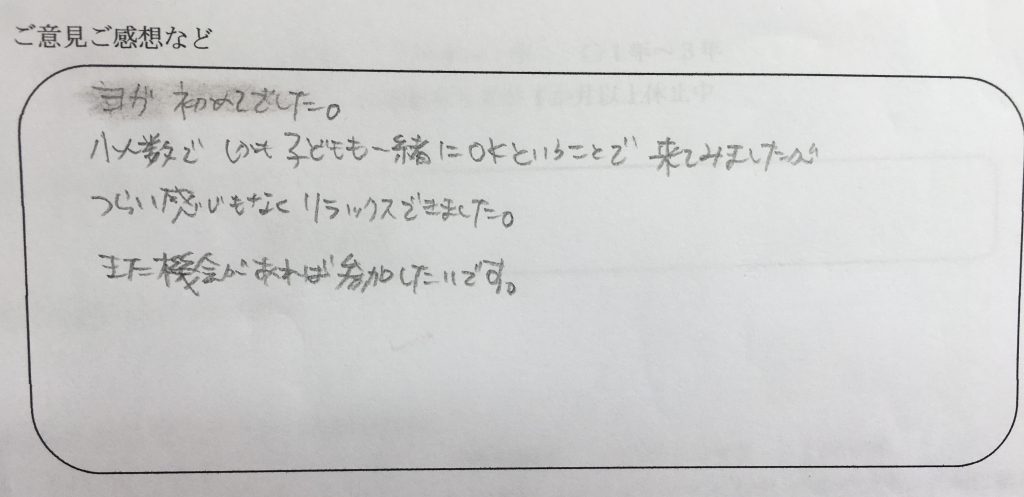 ご意見ご感想など
ヨガ 初めてでした。
少人数で しかも 子どもも一緒に OKということで 来てみましたが
つらい感じもなく リラックスできました。
また機会があれば 参加したいです。